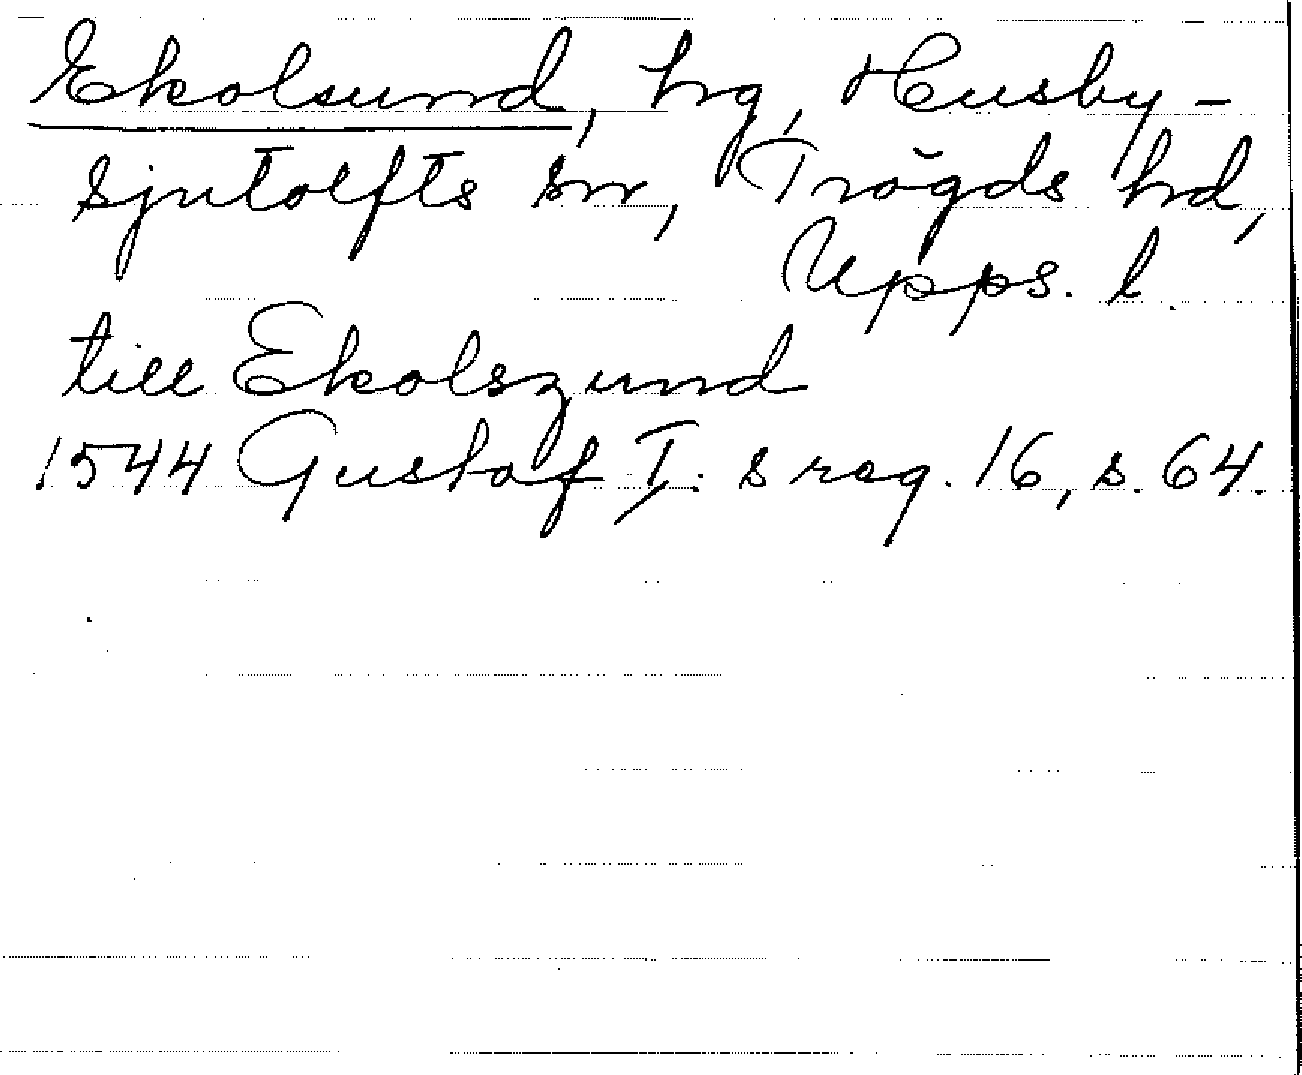 Ekolsund, hg, Husby-
sjutolfts sn, Trögds hd,
Upps. l.
till Ekolszund
1544 Gustaf I: s reg. 16, s. 64.